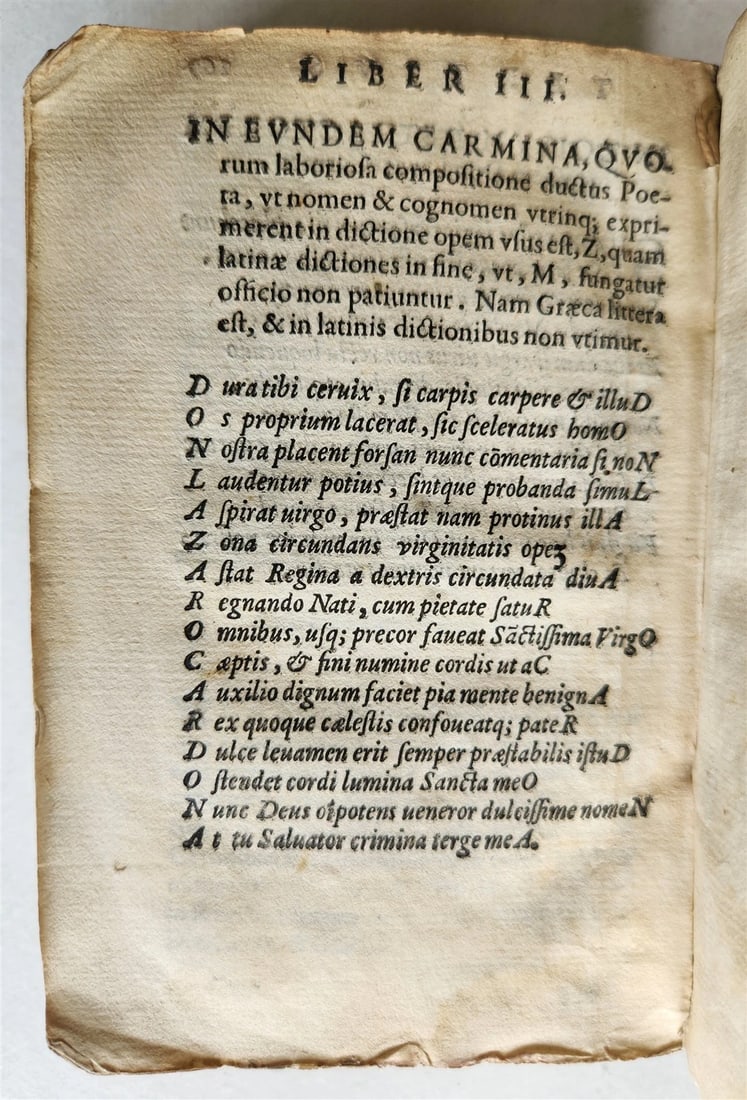 LIBER III.
IN EVNDEM CARMINA, QVO-
rum laborioſa compoſitione ductus Poe-
ta, vt nomen & cognomen vtrinq; expri-
merent in dictione opem vſus eſt, Z, quam
latinæ dictiones in fine, vt, M, fungatur
officio non patiuntur. Nam Græca littera
eſt, & in latinis dictionibus non vtimur.
D ura tibi ceruix, ſi carpis carpere & illuD
O s proprium lacerat, ſic ſceleratus homO
N oſtra placent forſan nunc cōmentaria ſi noN
L audentur potius, ſintque probanda ſimuL
A ſpirat uirgo, præſtat nam protinus illA
Z ona circundans virginitatis opeʒ
A ſtat Regina a dextris circundata diuA
R egnando Nati, cum pietate ſatuR
O mnibus, uſq; precor faueat Sāctiſſima VirgO
C æptis, & fini numine cordis ut aC
A uxilio dignum faciet pia mente benignA
R ex quoque cæleſtis confoueatq; pateR
D ulce leuamen erit ſemper præſtabilis iſtuD
O ſtendet cordi lumina Sancta meO
N unc Deus oīpotens ueneror dulciſſime nomeN
A t tu Saluator crimina terge meA.